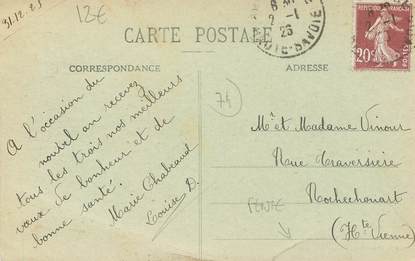 31.12.25
12€
CARTE POSTALE
CORRESPONDANCE
ADRESSE
A l'occasion du
nouvel an recevez
tous les trois nos meilleurs
vœux de bonheur et de
bonne santé.
Marie Chabeaud
Louise D.
74
2-1
26
HTE-SAVOIE
REPUBLIQUE FRANÇAISE
20c
POSTES
Mr et Madame Vinour
Rue Traversière
Rochechouart
(Hte Vienne)
FENTE